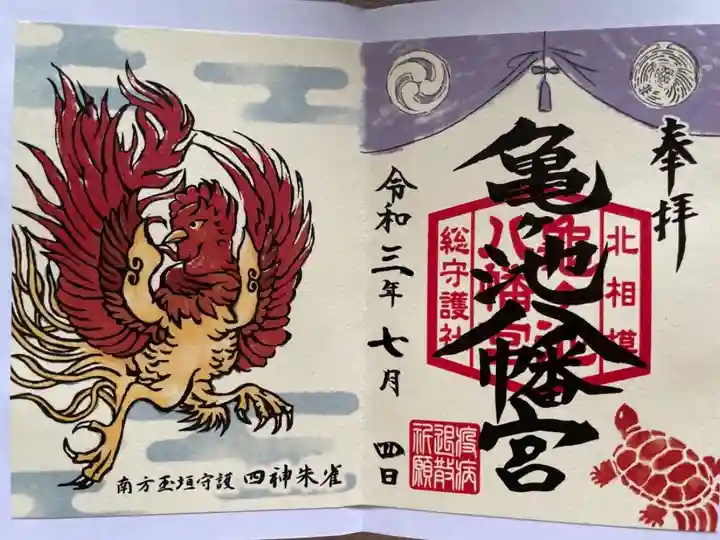 奉拝
北相模
亀ヶ池八幡宮
亀ヶ池八幡宮
総守護社
令和三年七月四日
疫病
退散
祈願
南方玉垣守護 四神朱雀